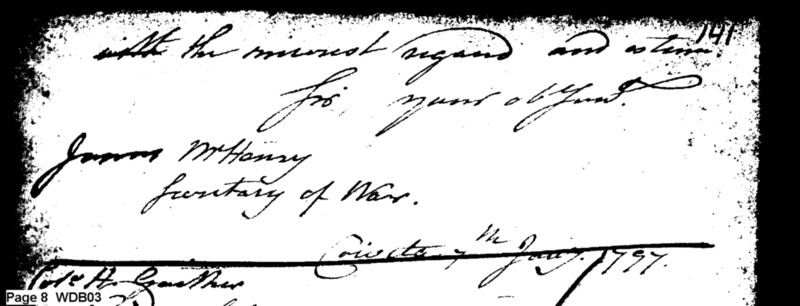 141
with the sincerest regard and esteem.
Sir, your ob Servt.
James McHenry
Secretary of War.
Coweta 7th Jany. 1797.
Colo. H. Gaither
Page 8 WDB03